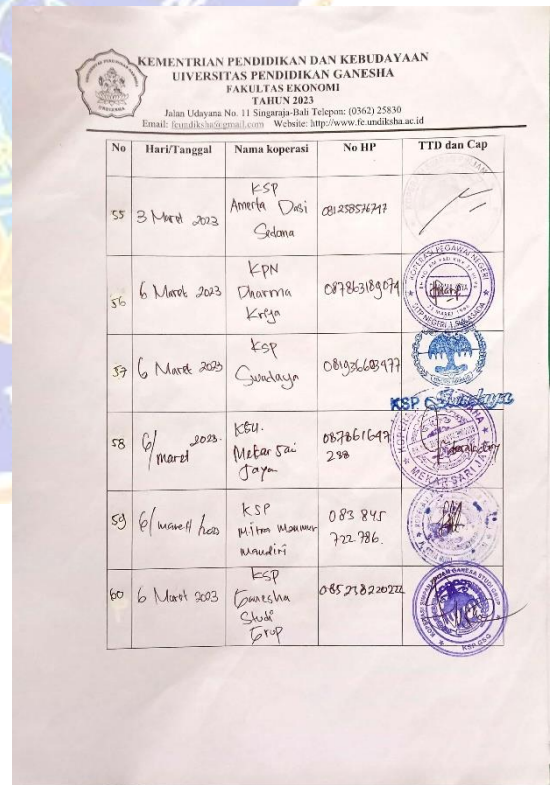 KEMENTRIAN PENDIDIKAN DAN KEBUDAYAAN
UIVERSITAS PENDIDIKAN GANESHA
FAKULTAS EKONOMI
TAHUN 2023
Jalan Udayana No. 11 Singaraja-Bali Telepon: (0362) 25830
Email: feundiksha@gmail.com Website: http://www.fe.undiksha.ac.id
No Hari/Tanggal Nama koperasi No HP TTD dan Cap
55 3 Maret 2023 KSP
Amerta Dasi
Sedana
081258576747
56 6 Maret 2023 KPN
Dharma
Kerja
087863189074
KOPERASI PEGAWAI NEGERI
SMP NEGERI 1 SUKASADA
57 6 Maret 2023 KSP
Swadaya
081936603477
KSP Swadaya
58 6/maret 2023. KSU.
Mekar Sari
Jaya
087861647
288
MEKAR SARI JAYA
59 6/maret KSP
Mitra Makmur
Mandiri
083 845
722 786.
60 6 Maret 2023 KSP
Ganesha
Studi
Grup
KOPERASI SIMPAN PINJAM GANESA STUDI GRUP
KSP.GSG